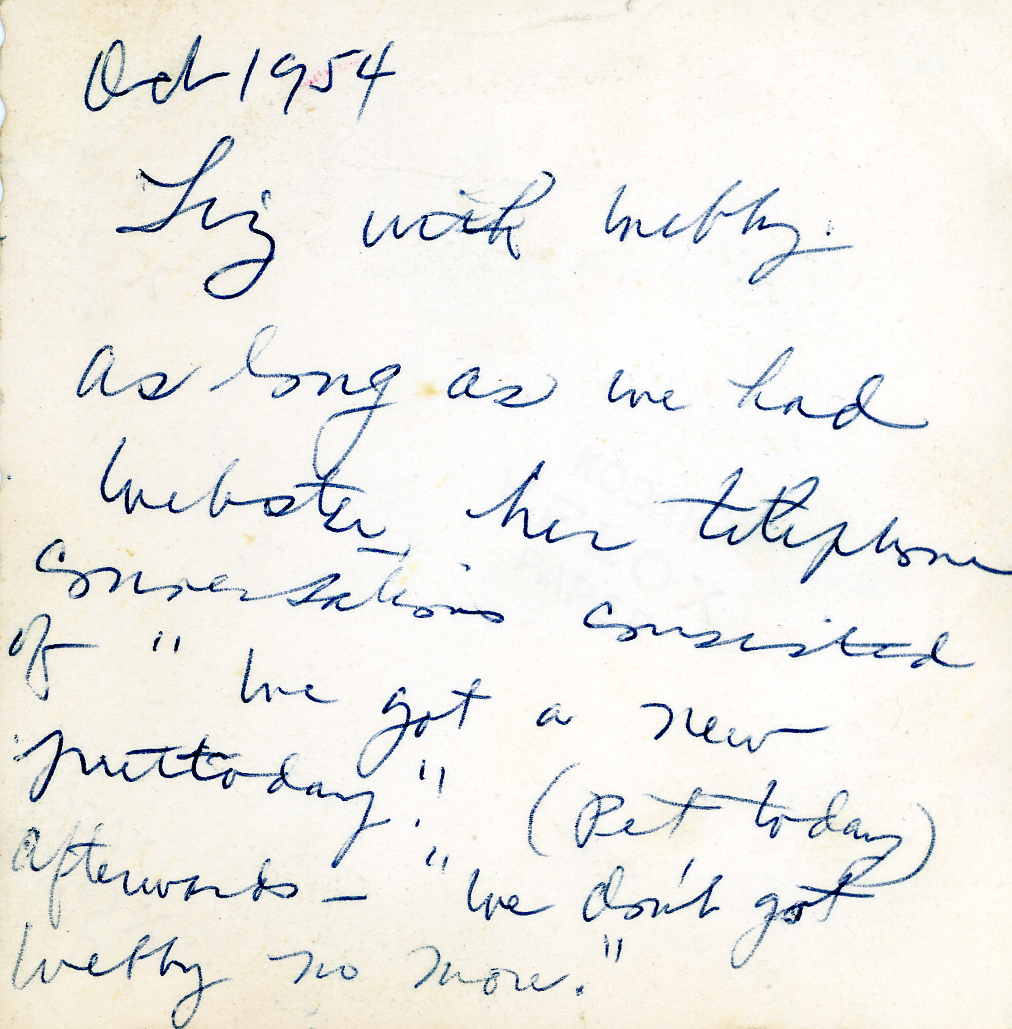 Oct 1954
Liz with Webby.
As long as we had
Webster, her telephone
conversations consisted
of " We got a new
prettoday"! (Pet today)
afterwards – "We don't got
Webby no more."